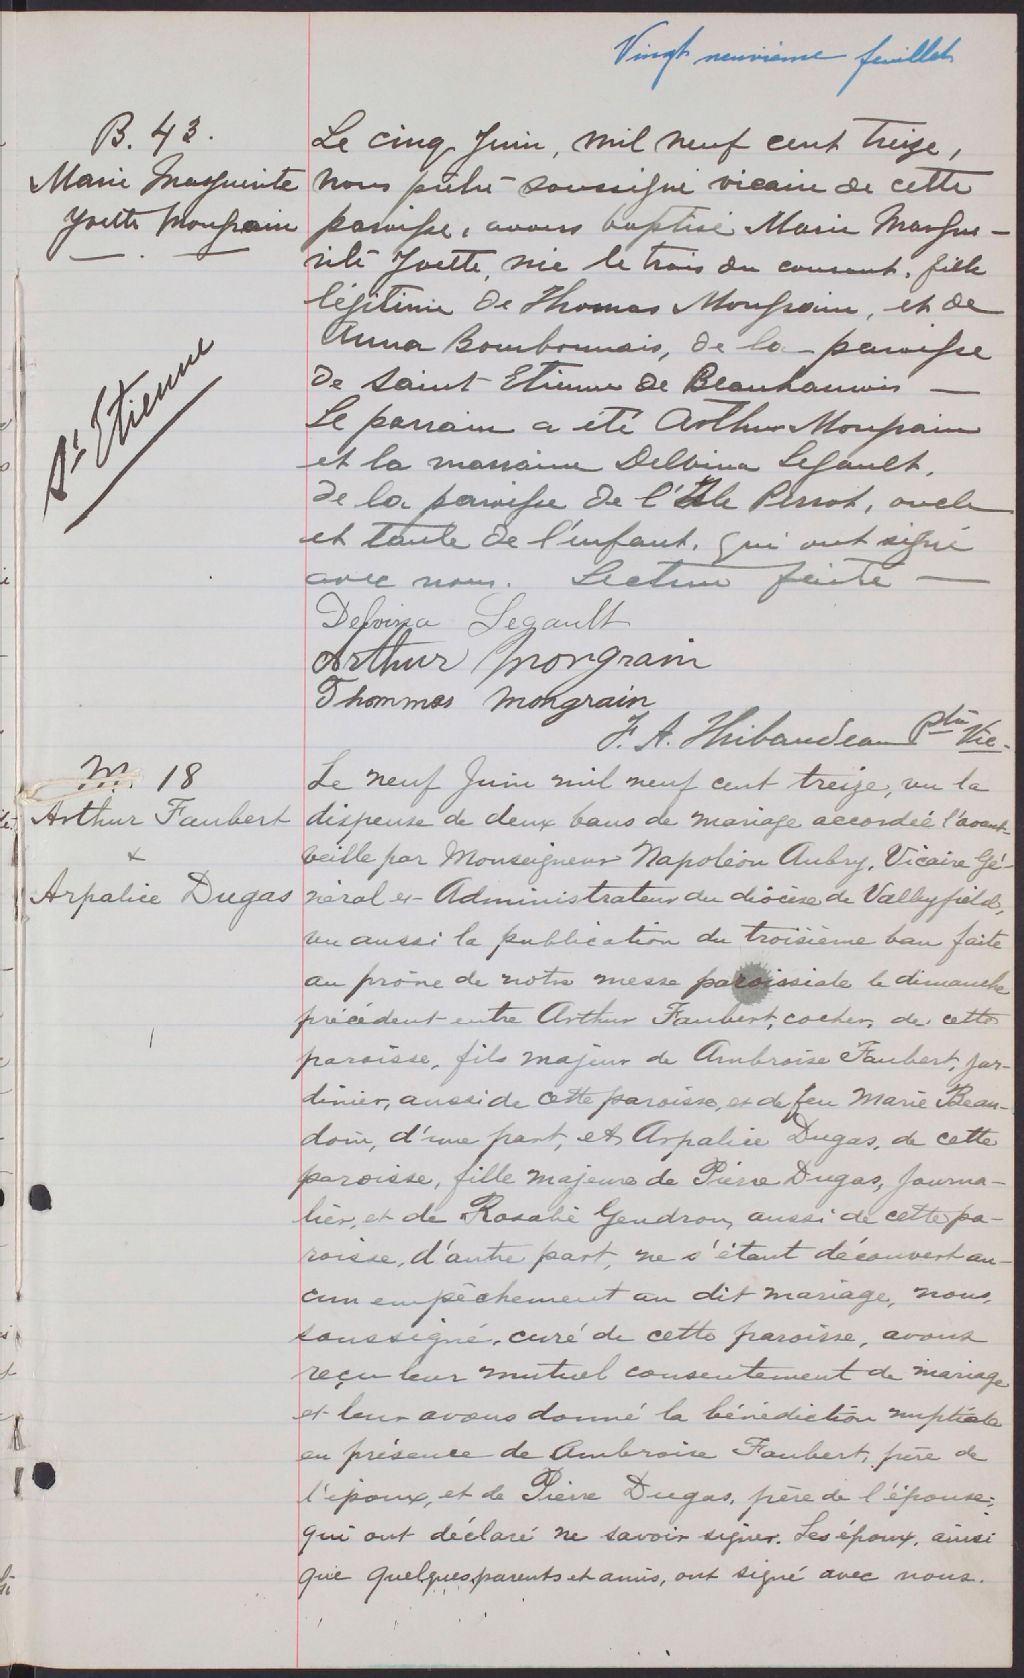 Vingt neuvième feuillet
B. 43.
Marie Marguerite
Yvette Mongrain
St Etienne
Le cinq Juin, mil neuf cent treize,
nous prêtre soussigné vicaire de cette
paroisse, avons baptisé Marie Margue-
rite Yvette, née le trois du courant, fille
légitime de Thomas Mongrain, et de
Anna Bourbonnais, de la paroisse
de Saint Etienne de Beauharnois —
Le parrain a été Arthur Mongrain
et la marraine Delvina Legault,
de la paroisse de l'Ile Perrot, oncle
et tante de l'enfant, qui ont signé
avec nous. Lecture faite —
Delvina Legault
Arthur Mongrain
Thommas Mongrain
F. A. Thibaudeau Ptre Vic.
M. 18
Arthur Faubert
x
Arpalice Dugas
Le neuf Juin mil neuf cent treize, vu la
dispense de deux bans de mariage accordée l'avant-
veille par Monseigneur Napoléon Aubry, Vicaire Gé-
néral et Administrateur du diocèse de Valleyfield,
vu aussi la publication du troisième ban faite
au prône de notre messe paroissiale le dimanche
précédent entre Arthur Faubert, cocher, de cette
paroisse, fils majeur de Ambroise Faubert, jar-
dinier, aussi de cette paroisse, et de feu Marie Beau-
doin, d'une part, et Arpalice Dugas, de cette
paroisse, fille majeure de Pierre Dugas, journa-
lier, et de Rosalie Gendron, aussi de cette pa-
roisse, d'autre part, ne s'étant découvert au-
cun empêchement au dit mariage, nous,
soussigné, curé de cette paroisse, avons
reçu leur mutuel consentement de mariage
et leur avons donné la bénédiction nuptiale
en présence de Ambroise Faubert, père de
l'époux, et de Pierre Dugas, père de l'épouse,
qui ont déclaré ne savoir signer. Les époux, ainsi
que quelques parents et amis, ont signé avec nous.